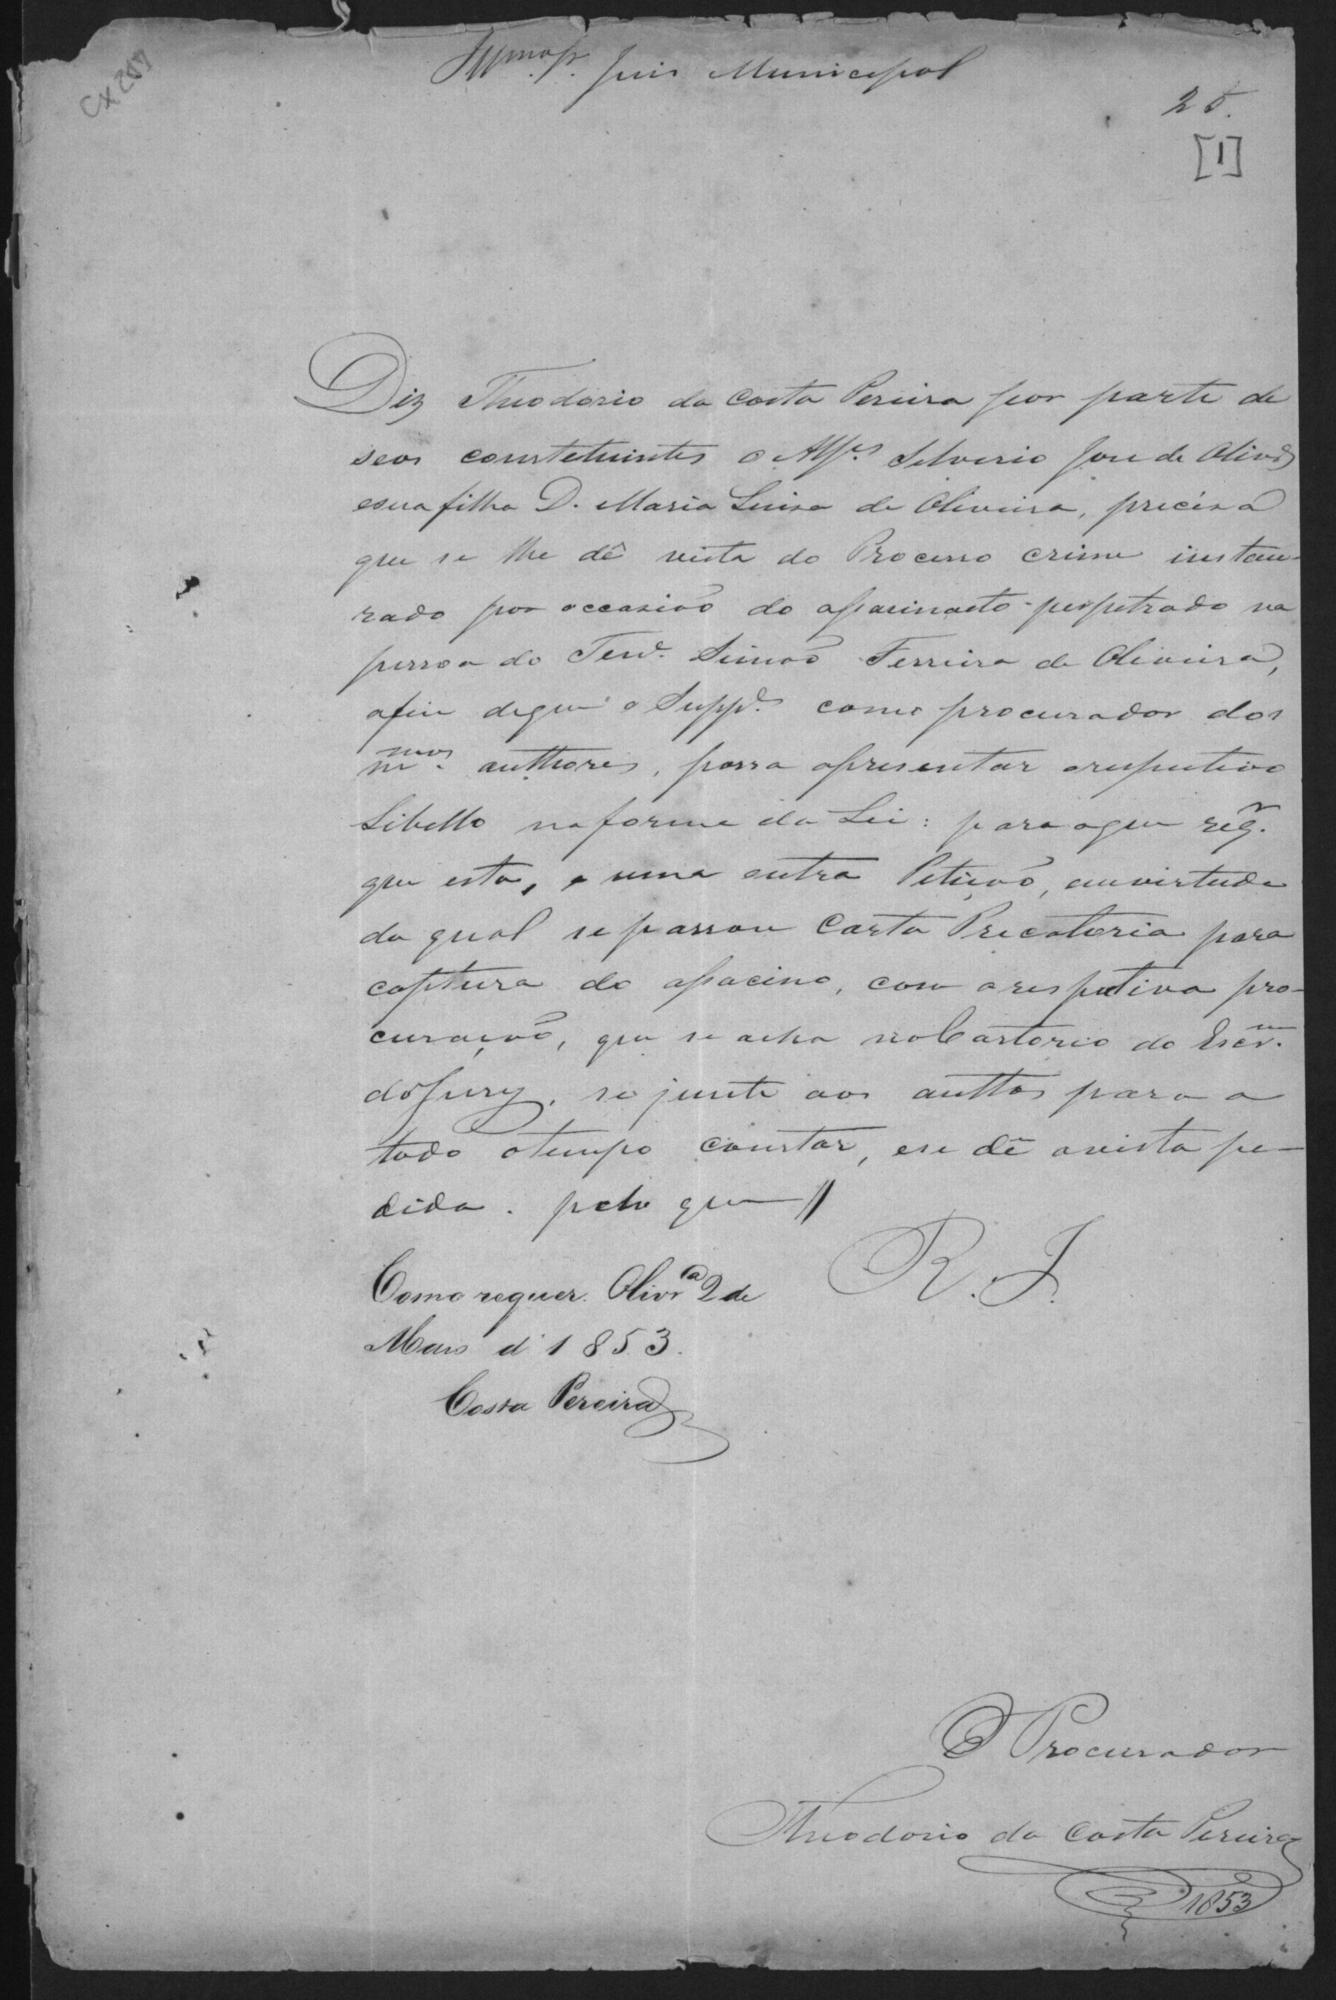 CX 257
Illmo Sr. Juis Municipal
25.
[1]
Diz Theodorio da Costa Pereira por parte de
seos constetuintes o Alfs. Silverio Jose de Olivra
e sua filha D. Maria Luisa de Oliveira, precisa
que se lhe dê vista do Processo crime instau-
rado por occasião do assacinacto perpetrado na
pessoa do Tene. Simão Ferreira de Oliveira,
afim de que o Suppe. como procurador dos
mmos. authores, possa apresentar o respectivo
Libello na forma da Lei: para o que req.
que esta, e uma outra Petição, em virtude
da qual se passou Carta Precatoria para
captura do assacino, com a respectiva pro-
curação, que se acha no Cartorio do Escram.
do Jury, se junte aos authos para a
todo o tempo constar, e se dê a vista pe-
dida. pelo que //
R. J.
Como requer. Olivra 2 de
Mars d' 1853.
Costa Pereira
O Procurador
Theodorio da Costa Pereira
1853